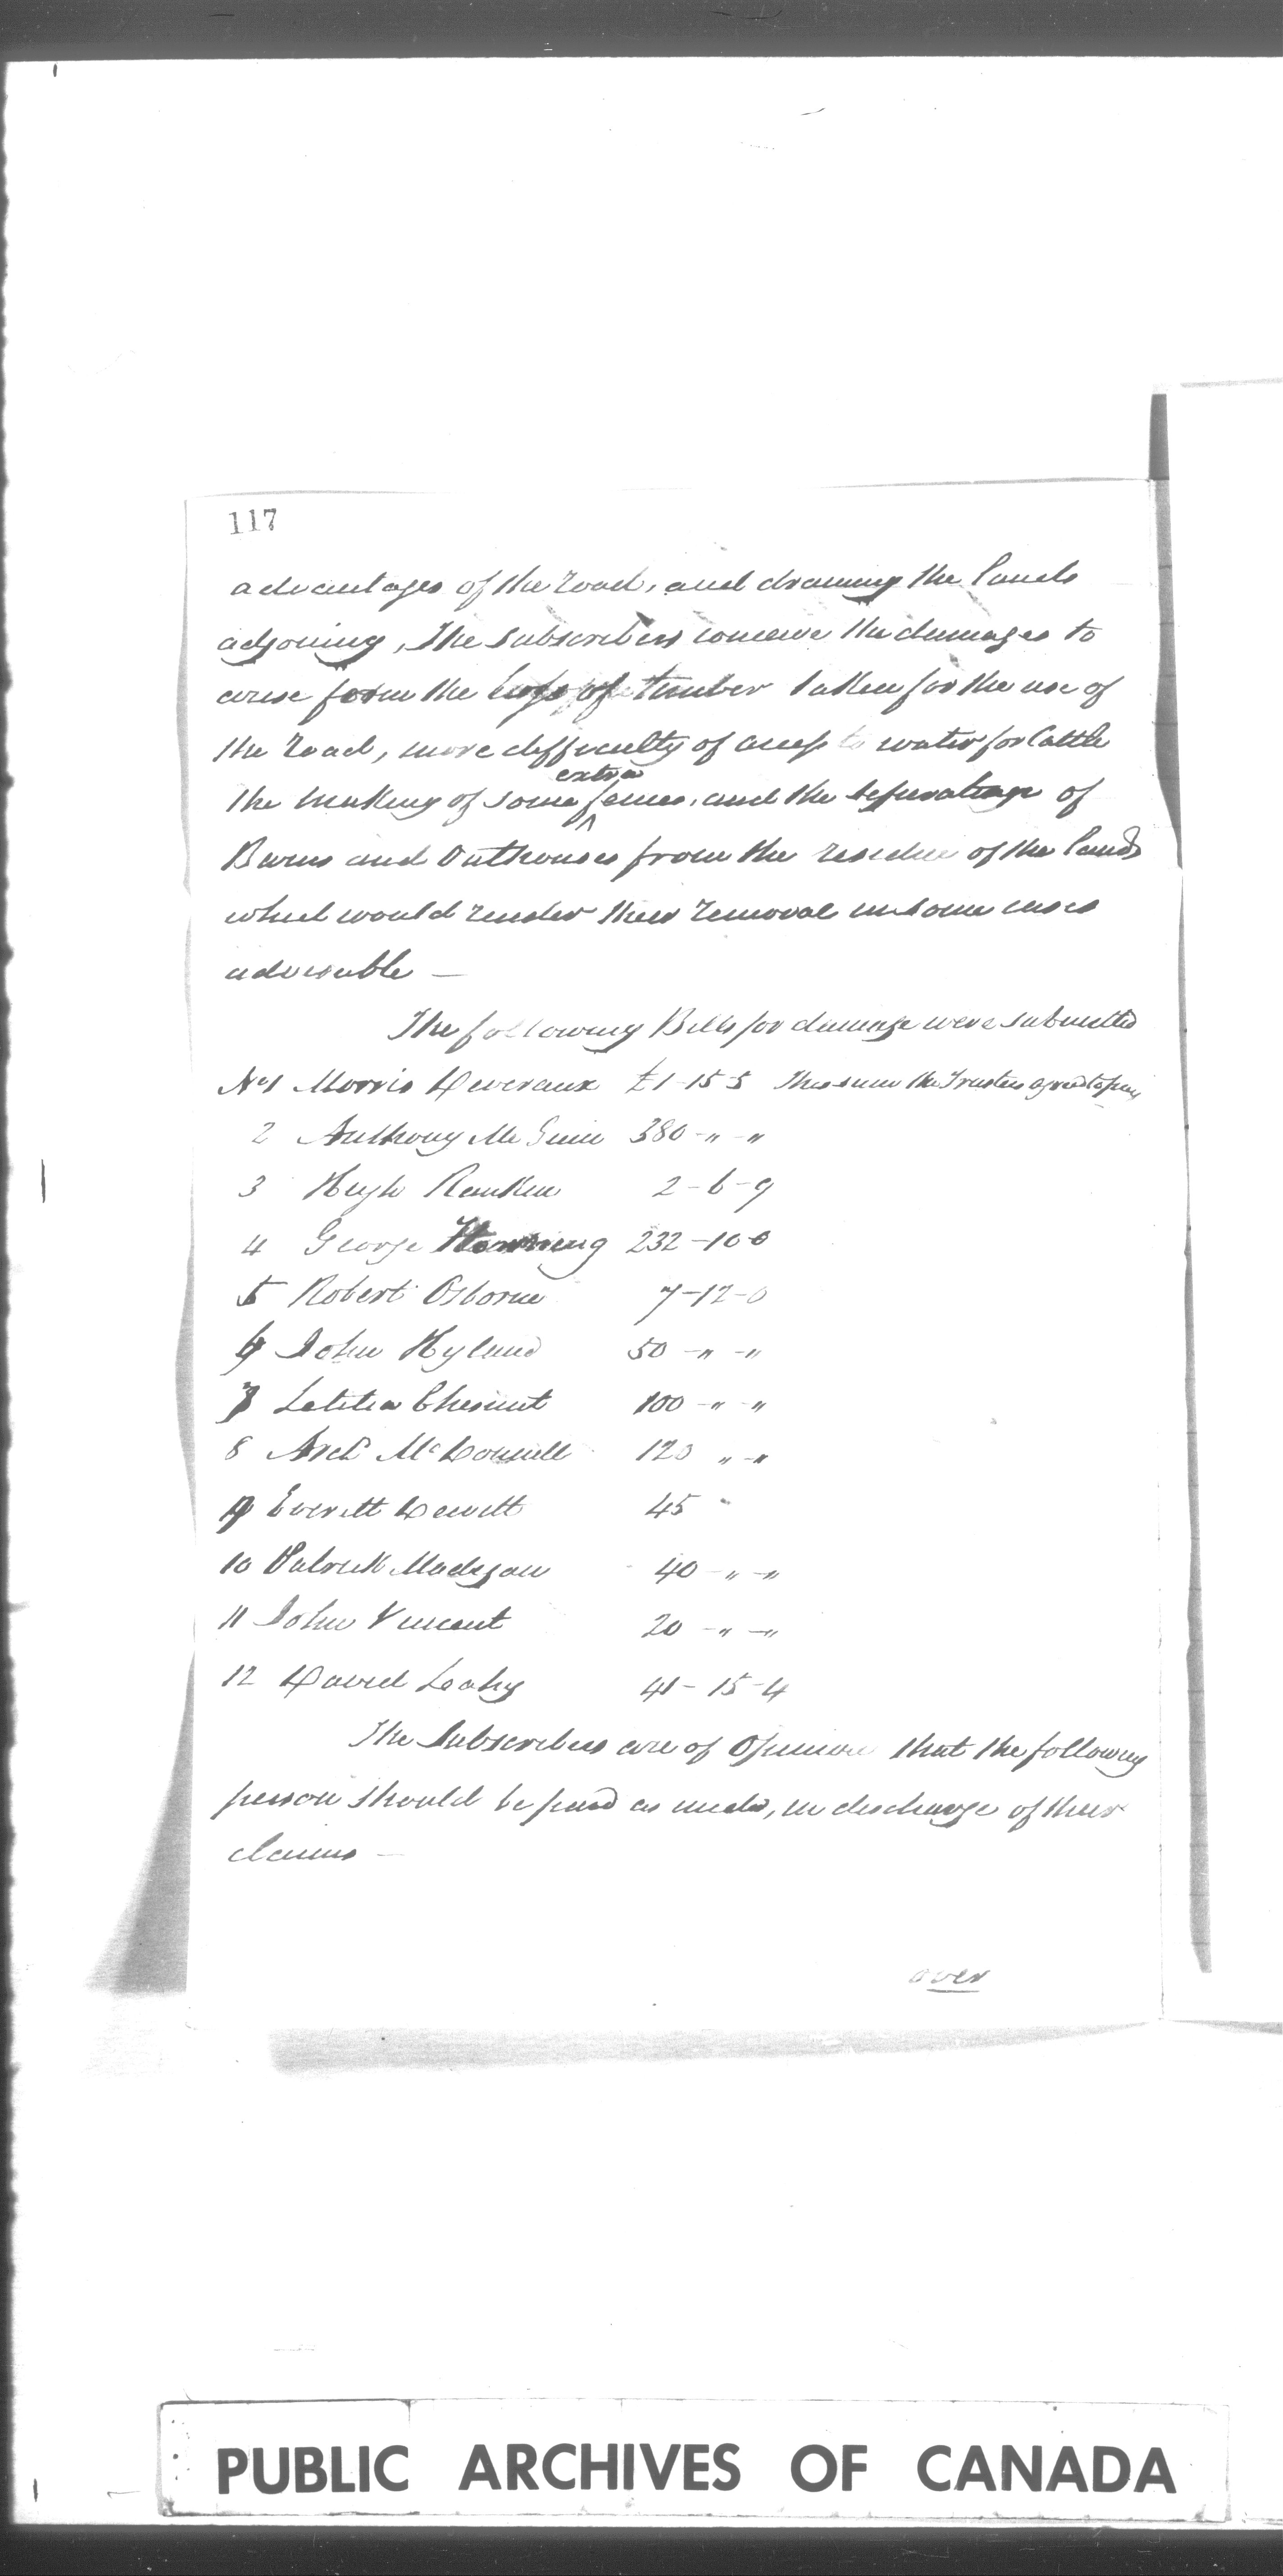 117
advantages of the road, and draining the lands
adjoining, The Subscribers conceive the damages to
arise form the loss of timber taken for the use of
the road, more difficulty of access to water for Cattle
extra
the making of some fences, and the separation of
Barns and Outhouses from the residue of the lands
which would render their removal in some cases
advisable —
The following Bills for damage were submitted
No 1 Morris Deveraux £1-15-5 This sum the Trustees agreed to pay
2 Anthony McGuin 380-"-"
3 Hugh Rankin 2-6-9
4 George 232-10-0
5 Robert Osborne 7-12-0
6 John Hyland 50-"-"
7 Letitia Chesnut 100-"-"
8 Archd McDonnell 120 "-"
9 Everitt Dewitt 45 "
10 Patrick Madigan 40-"-"
11 John Vincent 20-"-"
12 David Leahy 41-15-4
The Subscribers are of Opinion that the following
person should be paid as under, in discharge of their
claims —
over
PUBLIC ARCHIVES OF CANADA